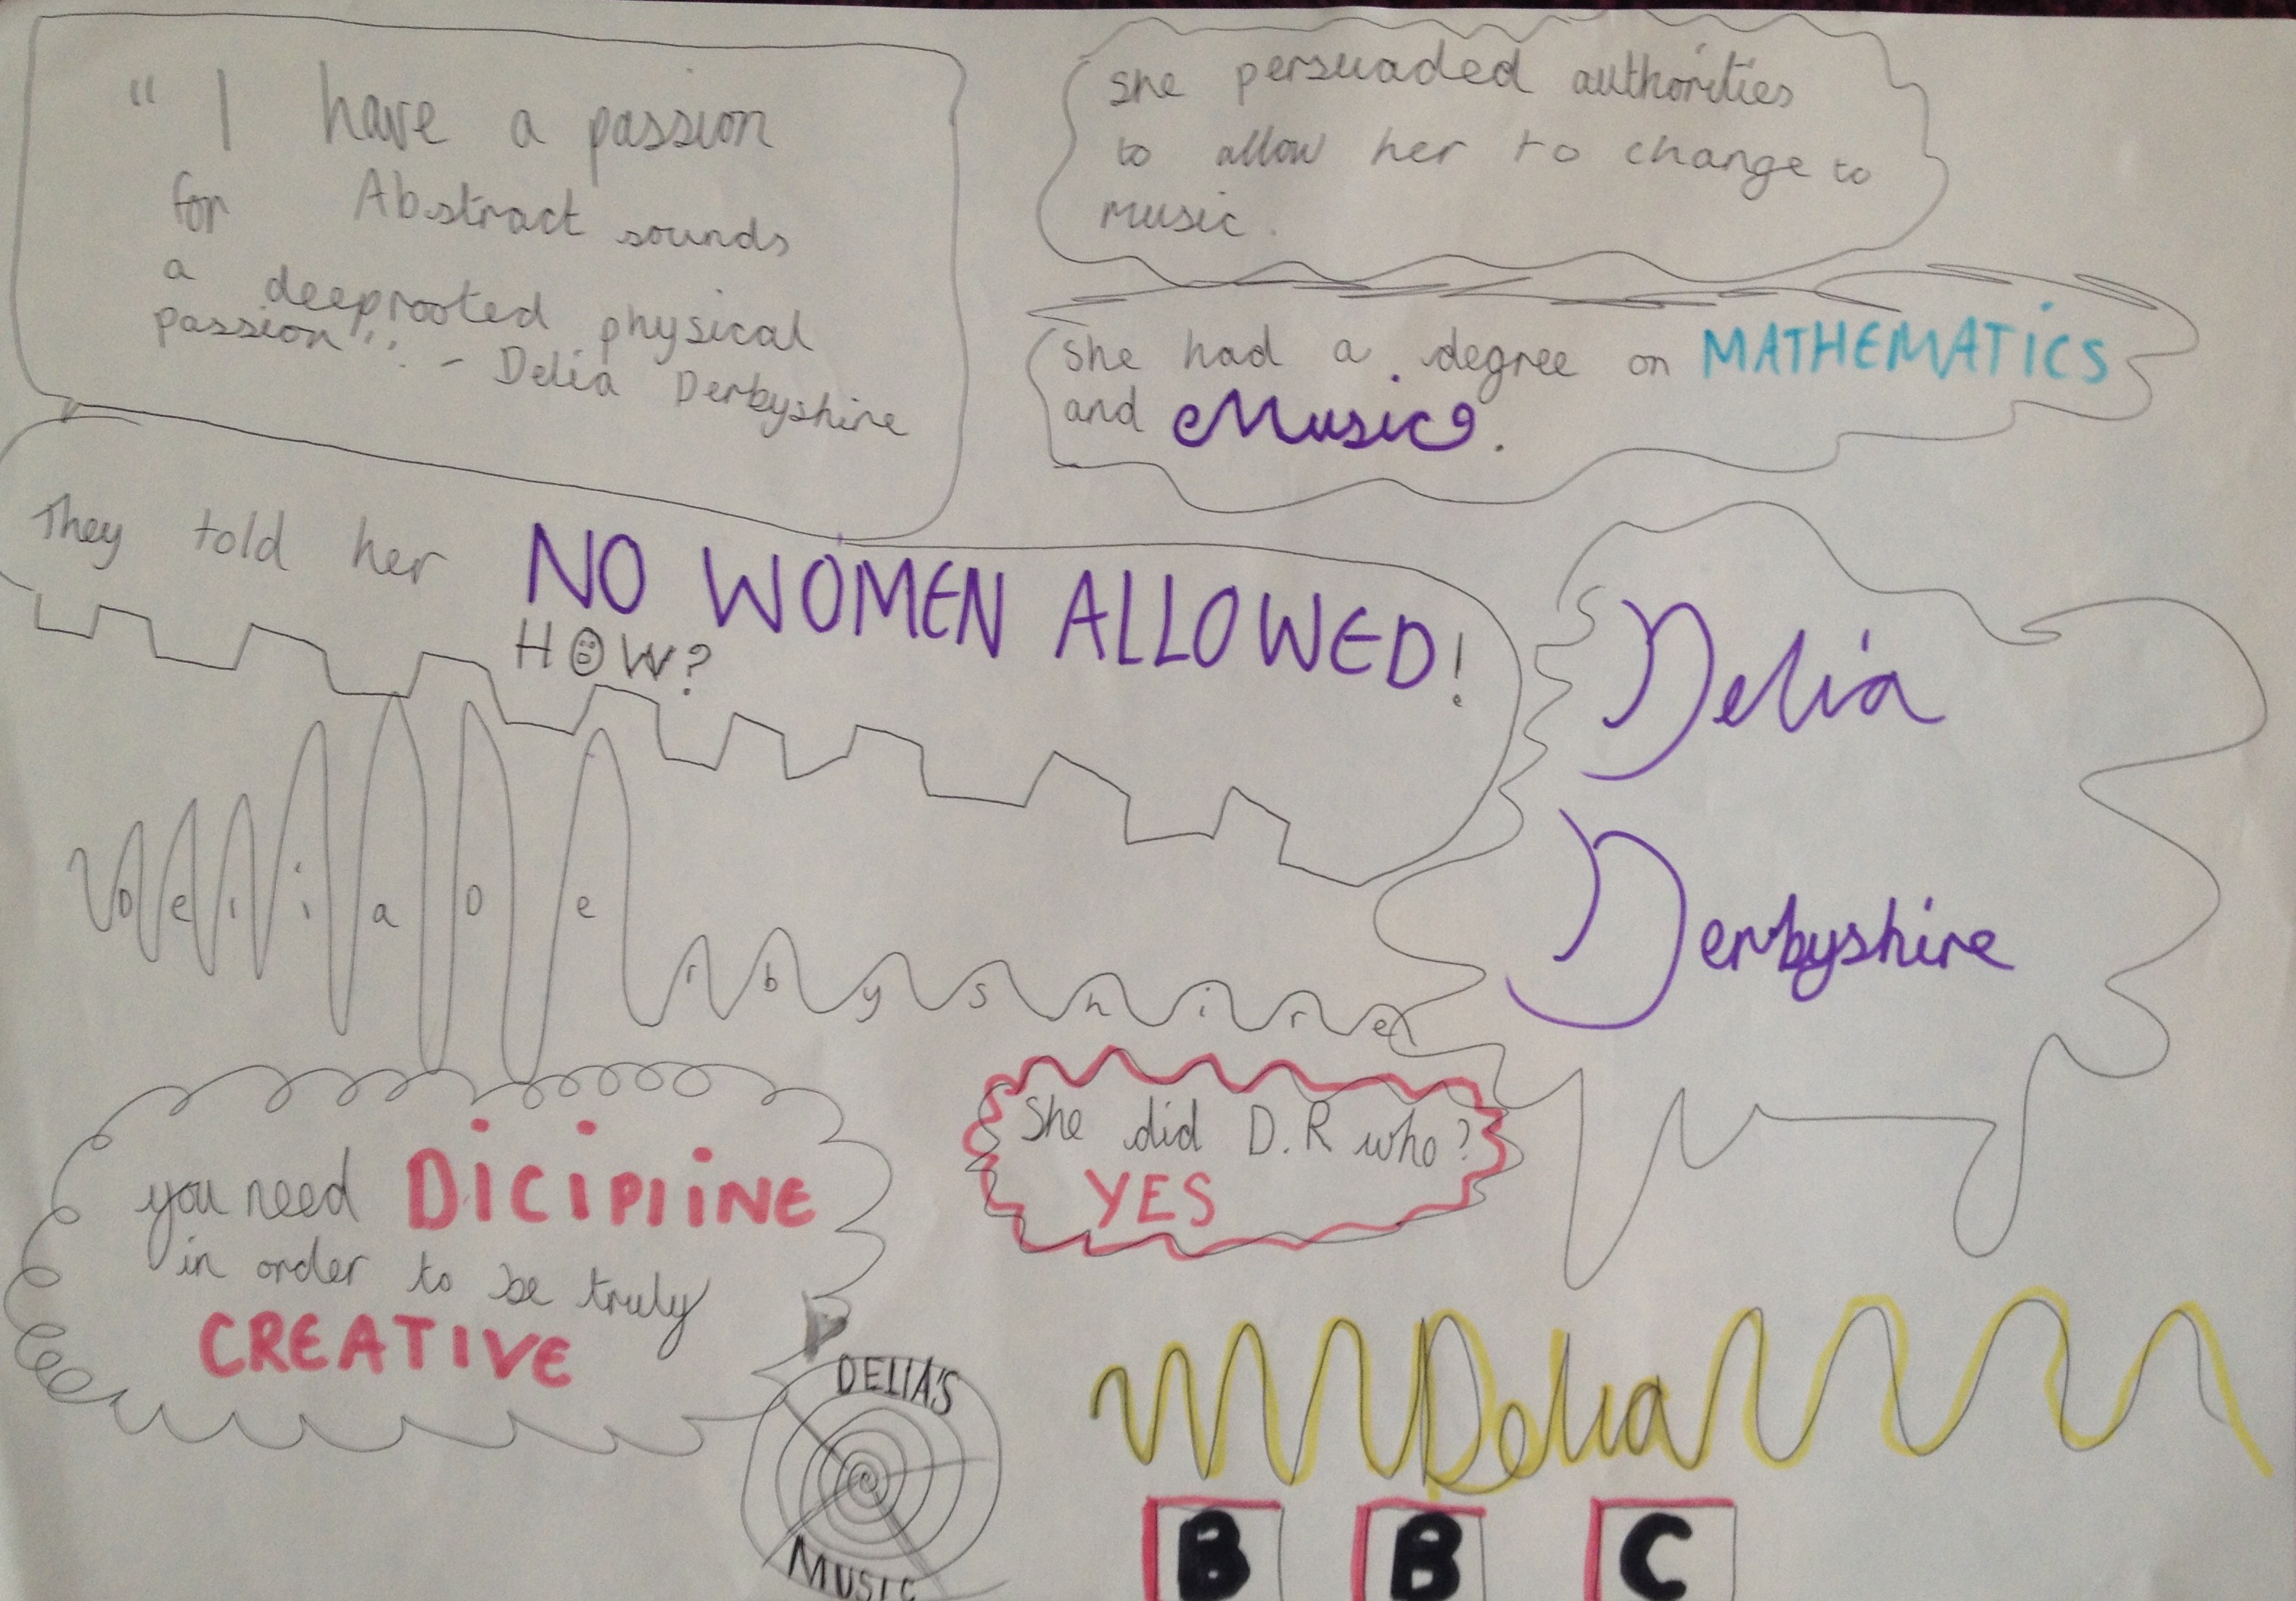 " I have a passion
for Abstract sounds
a deeprooted physical
passion". - Delia Derbyshire
She persuaded authorities
to allow her to change to
music.
She had a degree on MATHEMATICS
and Music.
They told her NO WOMEN ALLOWED!
HOW?
Delia
Derbyshire
Delia Derbyshire
She did D.R who?
YES
you need DICIPlINE
in order to be truly
CREATIVE
DELIA'S
MUSIC
Delia
B B C